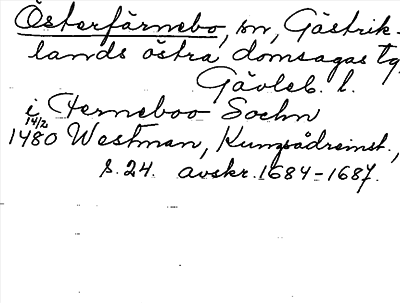 Österfärnebo, sn, Gästrik-
lands östra domsagas tg.
Gävleb. l.
i Ferneboo Sochn
14/2
1480 Westman, Kungsådreinst.,
s. 24. avskr. 1684-1687.